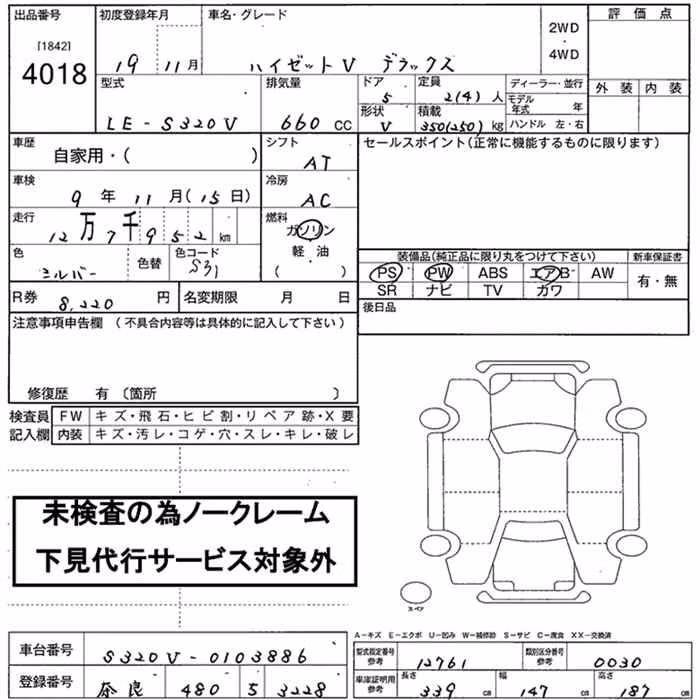 出品番号 初度登録年月 車名・グレード 2WD・4WD 評価点
[1842]
4018 19 11月 ハイゼットV デラックス
型式 排気量 ドア 5 定員 2(4)人 ディーラー・並行 外装 内装
モデル年式 年
LE-S320V 660cc 形状 V 積載 350(250)kg ハンドル 左・右
車歴 シフト セールスポイント(正常に機能するものに限ります)
自家用・( ) AT
車検 冷房
9年11月(15日) AC
走行 燃料
12万7千952km ガソリン
軽・油
( )
色 色替 色コード 装備品(純正品に限り丸をつけて下さい) 新車保証書
シルバー S31 PS PW ABS エアB AW 有・無
SR ナビ TV カワ
R券 8,220円 名変期限 月 日 後日品
注意事項申告欄 (不具合内容等は具体的に記入して下さい)
修復歴 有 〔箇所 〕
検査員 FW キズ・飛石・ヒビ割・リペア跡・X要
記入欄 内装 キズ・汚レ・コゲ・穴・スレ・キレ・破レ
未検査の為ノークレーム
下見代行サービス対象外
スペア
A-キズ E-エクボ U-凹み W-補修跡 S-サビ C-腐食 XX-交換済
車台番号 S320V-0103886 型式指定番号 参考 12761 類別区分番号 参考 0030
登録番号 奈良 480 5 3228 車庫証明用 参考 長さ 339cm 幅 147cm 高さ 187cm